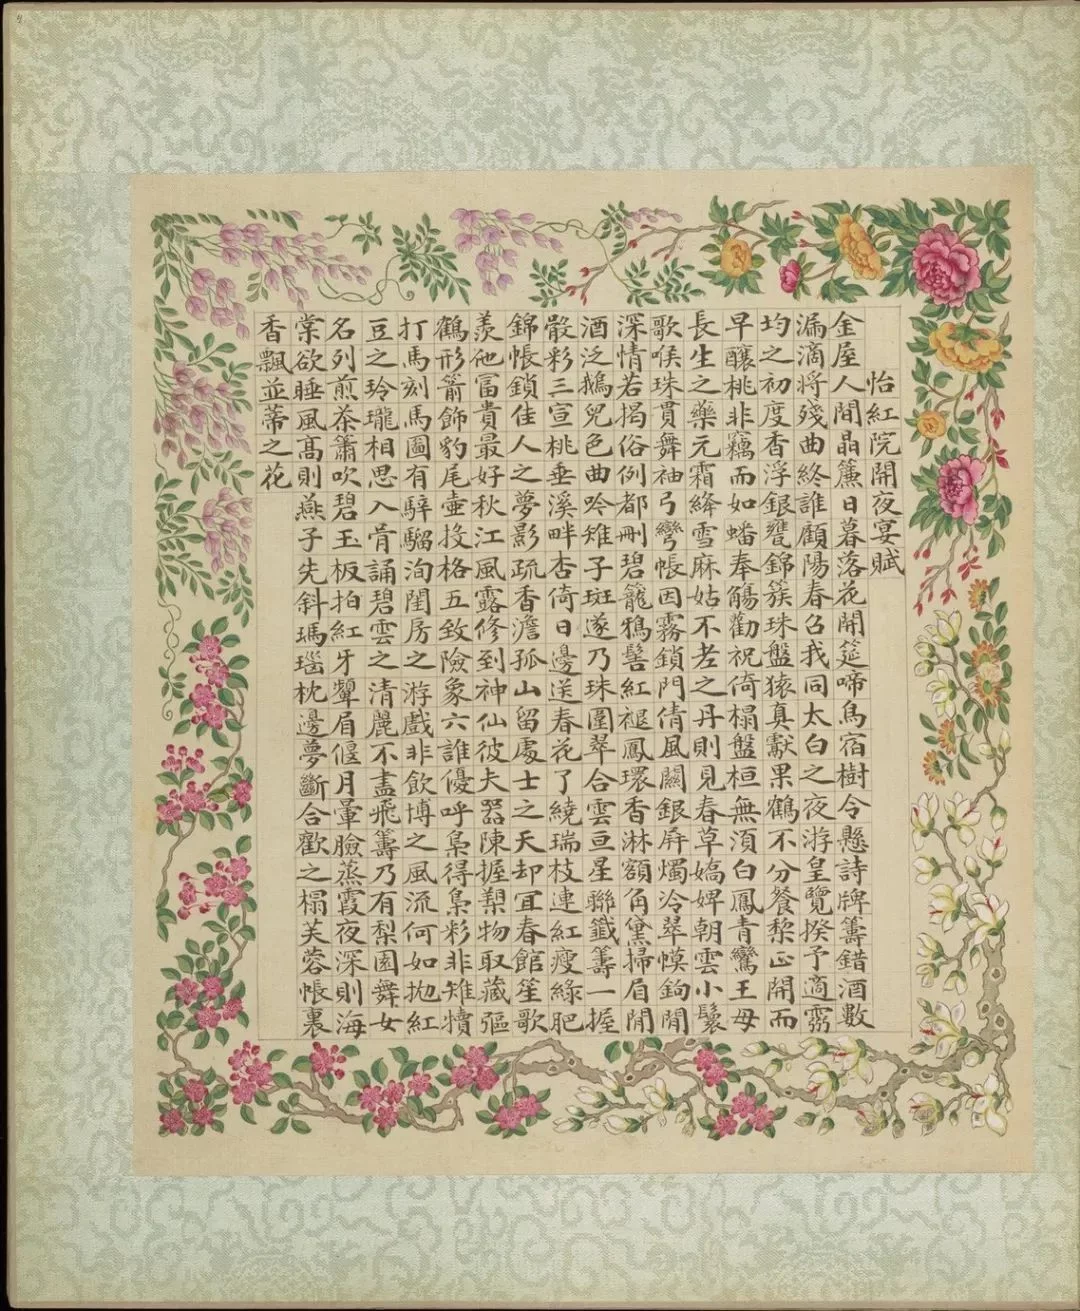 怡紅院開夜宴賦
金屋人間晶簾日暮落花開筵啼鳥宿樹令懸詩牌籌錯酒數
漏滴將殘曲終誰顧陽春召我同太白之夜游皇覽揆予適霛
均之初度香浮銀甕錦簇珠盤猿真獻果鶴不分餐黎正開而
早釀桃非竊而如蟠奉觴勸祝倚榻盤桓無須白鳳青鸞王母
長生之藥元霜絳雪麻姑不老之丹則見春草嬌婢朝雲小鬟
歌喉珠貫舞袖弓彎帳因霧鎖門倩風關銀屏燭冷翠幙鉤閒
深情若揭俗例都刪碧籠鴉髻紅褪鳳環香淋額角黛掃眉間
酒泛鵝兒色曲吟雉子斑遂乃珠圍翠合雲亘星聯籤籌一握
骰彩三宣桃垂溪畔杏倚日邊送春花了繞瑞枝連紅瘦綠肥
錦帳鎖佳人之夢影疏香澹孤山留處士之天却宜春館笙歌
羨他富貴最好秋江風露修到神仙彼夫器陳握槊物取藏彄
鶴形箭飾豹尾壺投格五致險象六誰優呼梟得梟彩非雉犢
打馬刻馬圖有騂騮洵閨房之游戲非飲博之風流何如拋紅
豆之玲瓏相思入骨誦碧雲之清麗不盡飛籌乃有梨園舞女
名列煎茶簫吹碧玉板拍紅牙顰眉偃月暈臉蒸霞夜深則海
棠欲睡風高則燕子先斜瑪瑙枕邊夢斷合歡之榻芙蓉帳裏
香飄並蒂之花